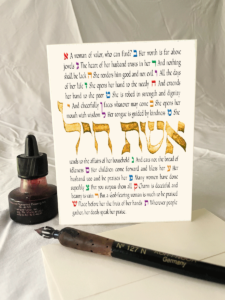 א A woman of valor, who can find? ב Her worth is far above
jewels ג The heart of her husband trusts in her ד And nothing
shall he lack ה She renders him good and not evil ו All the days
of her life ז She opens her hand to the needy ח And extends
her hand to the poor ט She is robed in strength and dignity
י And cheerfully faces whatever may come כ She opens her
mouth with wisdom ל Her tongue is guided by kindness מ She
אשת חיל
tends to the affairs of her household נ And eats not the bread of
idleness ס Her children come forward and bless her ע Her
husband too and he praises her פ Many women have done
superbly צ But you surpass them all ק Charm is deceptive and
beauty is vain ר
her ש Place before her the fruit of her hands ת Wherever people
gather, her deeds speak her praise.
Nº 127 N
Germany